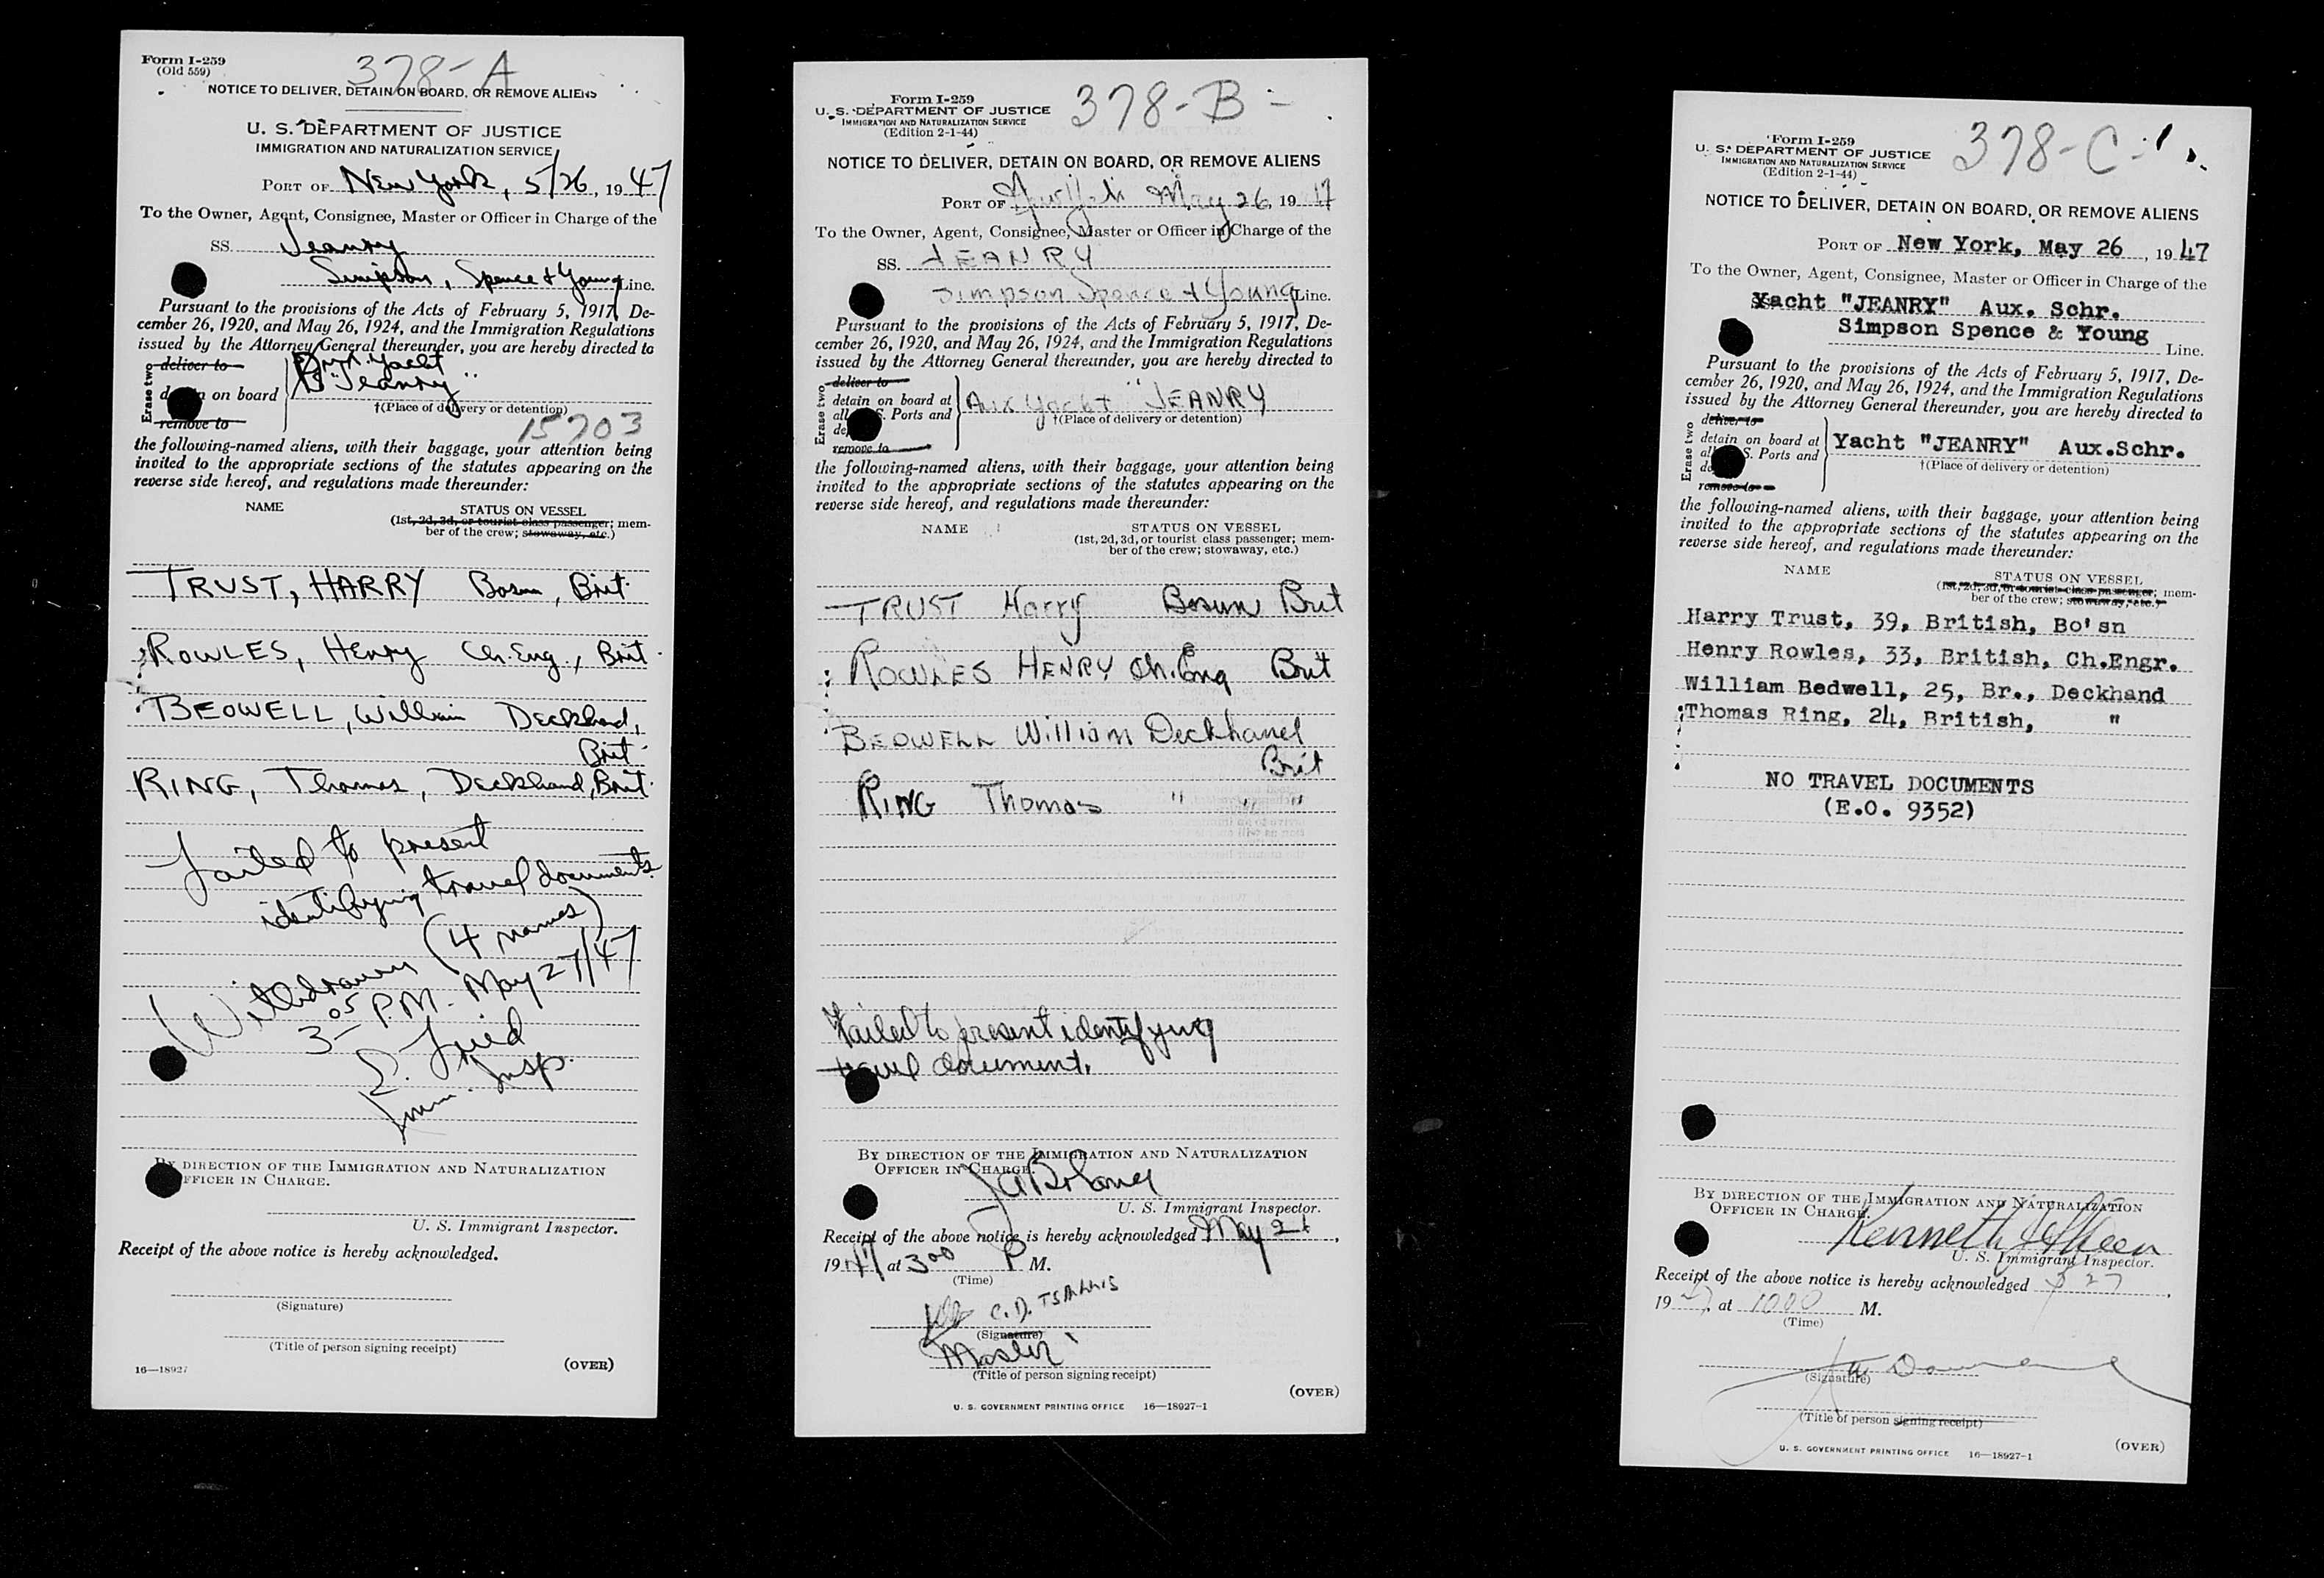 Form I-259
(Old 559)
378-A
NOTICE TO DELIVER, DETAIN ON BOARD, OR REMOVE ALIENS
U. S. DEPARTMENT OF JUSTICE
IMMIGRATION AND NATURALIZATION SERVICE
PORT OF New York, 5/26, 1947
To the Owner, Agent, Consignee, Master or Officer in Charge of the
SS. Jeanry
Simpson, Spence & Young Line.
Pursuant to the provisions of the Acts of February 5, 1917, De-
cember 26, 1920, and May 26, 1924, and the Immigration Regulations
issued by the Attorney General thereunder, you are hereby directed to
Erase two
deliver to
on board
remove to
Yacht
"Jeanry"
†(Place of delivery or detention)
15703
the following-named aliens, with their baggage, your attention being
invited to the appropriate sections of the statutes appearing on the
reverse side hereof, and regulations made thereunder:
NAME STATUS ON VESSEL
(1st, 2d, 3d, or tourist class passenger; mem-
ber of the crew; stowaway, etc.)
TRUST, HARRY Bosun, Brit.
ROWLES, Henry Ch. Eng., Brit.
BEDWELL, William Deckhand,
Brit.
RING, Thomas, Deckhand, Brit.
failed to present
identifying travel documents
(4 names)
Withdrawn
3 05 P.M. May 27/47
E. Fried
Imm. Insp.
BY DIRECTION OF THE IMMIGRATION AND NATURALIZATION
OFFICER IN CHARGE.
U. S. Immigrant Inspector.
Receipt of the above notice is hereby acknowledged.
(Signature)
(Title of person signing receipt)
16—18927
(OVER)
Form I-259
U. S. DEPARTMENT OF JUSTICE
IMMIGRATION AND NATURALIZATION SERVICE
(Edition 2-1-44)
378-B-
NOTICE TO DELIVER, DETAIN ON BOARD, OR REMOVE ALIENS
PORT OF New York May 26, 1947
To the Owner, Agent, Consignee, Master or Officer in Charge of the
SS. JEANRY
Simpson Spence & Young Line.
Pursuant to the provisions of the Acts of February 5, 1917, De-
cember 26, 1920, and May 26, 1924, and the Immigration Regulations
issued by the Attorney General thereunder, you are hereby directed to
Erase two
deliver to
detain on board at
all S. Ports and
remove to
Aux Yacht "JEANRY
†(Place of delivery or detention)
the following-named aliens, with their baggage, your attention being
invited to the appropriate sections of the statutes appearing on the
reverse side hereof, and regulations made thereunder:
NAME STATUS ON VESSEL
(1st, 2d, 3d, or tourist class passenger; mem-
ber of the crew; stowaway, etc.)
TRUST Harry Bosun Brit
ROWLES HENRY Ch. Eng Brit
BEDWELL William Deckhand
Brit
RING Thomas " " "
Failed to present identifying
travel document.
BY DIRECTION OF THE IMMIGRATION AND NATURALIZATION
OFFICER IN CHARGE.
U. S. Immigrant Inspector.
Receipt of the above notice is hereby acknowledged May 26,
1947 at 3 00 P M.
(Time)
C. D. TSALLIS
(Signature)
Master
(Title of person signing receipt)
(OVER)
U. S. GOVERNMENT PRINTING OFFICE 16—18927-1
Form I-259
U. S. DEPARTMENT OF JUSTICE
IMMIGRATION AND NATURALIZATION SERVICE
(Edition 2-1-44)
378-C-
NOTICE TO DELIVER, DETAIN ON BOARD, OR REMOVE ALIENS
PORT OF New York, May 26, 1947
To the Owner, Agent, Consignee, Master or Officer in Charge of the
Yacht "JEANRY" Aux. Schr.
Simpson Spence & Young Line.
Pursuant to the provisions of the Acts of February 5, 1917, De-
cember 26, 1920, and May 26, 1924, and the Immigration Regulations
issued by the Attorney General thereunder, you are hereby directed to
Erase two
deliver to
detain on board at
all S. Ports and
remove to
Yacht "JEANRY" Aux.Schr.
†(Place of delivery or detention)
the following-named aliens, with their baggage, your attention being
invited to the appropriate sections of the statutes appearing on the
reverse side hereof, and regulations made thereunder:
NAME STATUS ON VESSEL
(1st, 2d, 3d, or tourist class passenger; mem-
ber of the crew; stowaway, etc.)
Harry Trust, 39, British, Bo'sn
Henry Rowles, 33, British, Ch.Engr.
William Bedwell, 25, Br., Deckhand
Thomas Ring, 24, British, "
NO TRAVEL DOCUMENTS
(E.O. 9352)
BY DIRECTION OF THE IMMIGRATION AND NATURALIZATION
OFFICER IN CHARGE.
Kenneth
U. S. Immigrant Inspector.
Receipt of the above notice is hereby acknowledged 5 27,
1947, at 1000 M.
(Time)
(Signature)
(Title of person signing receipt)
U. S. GOVERNMENT PRINTING OFFICE 16—18927-1
(OVER)